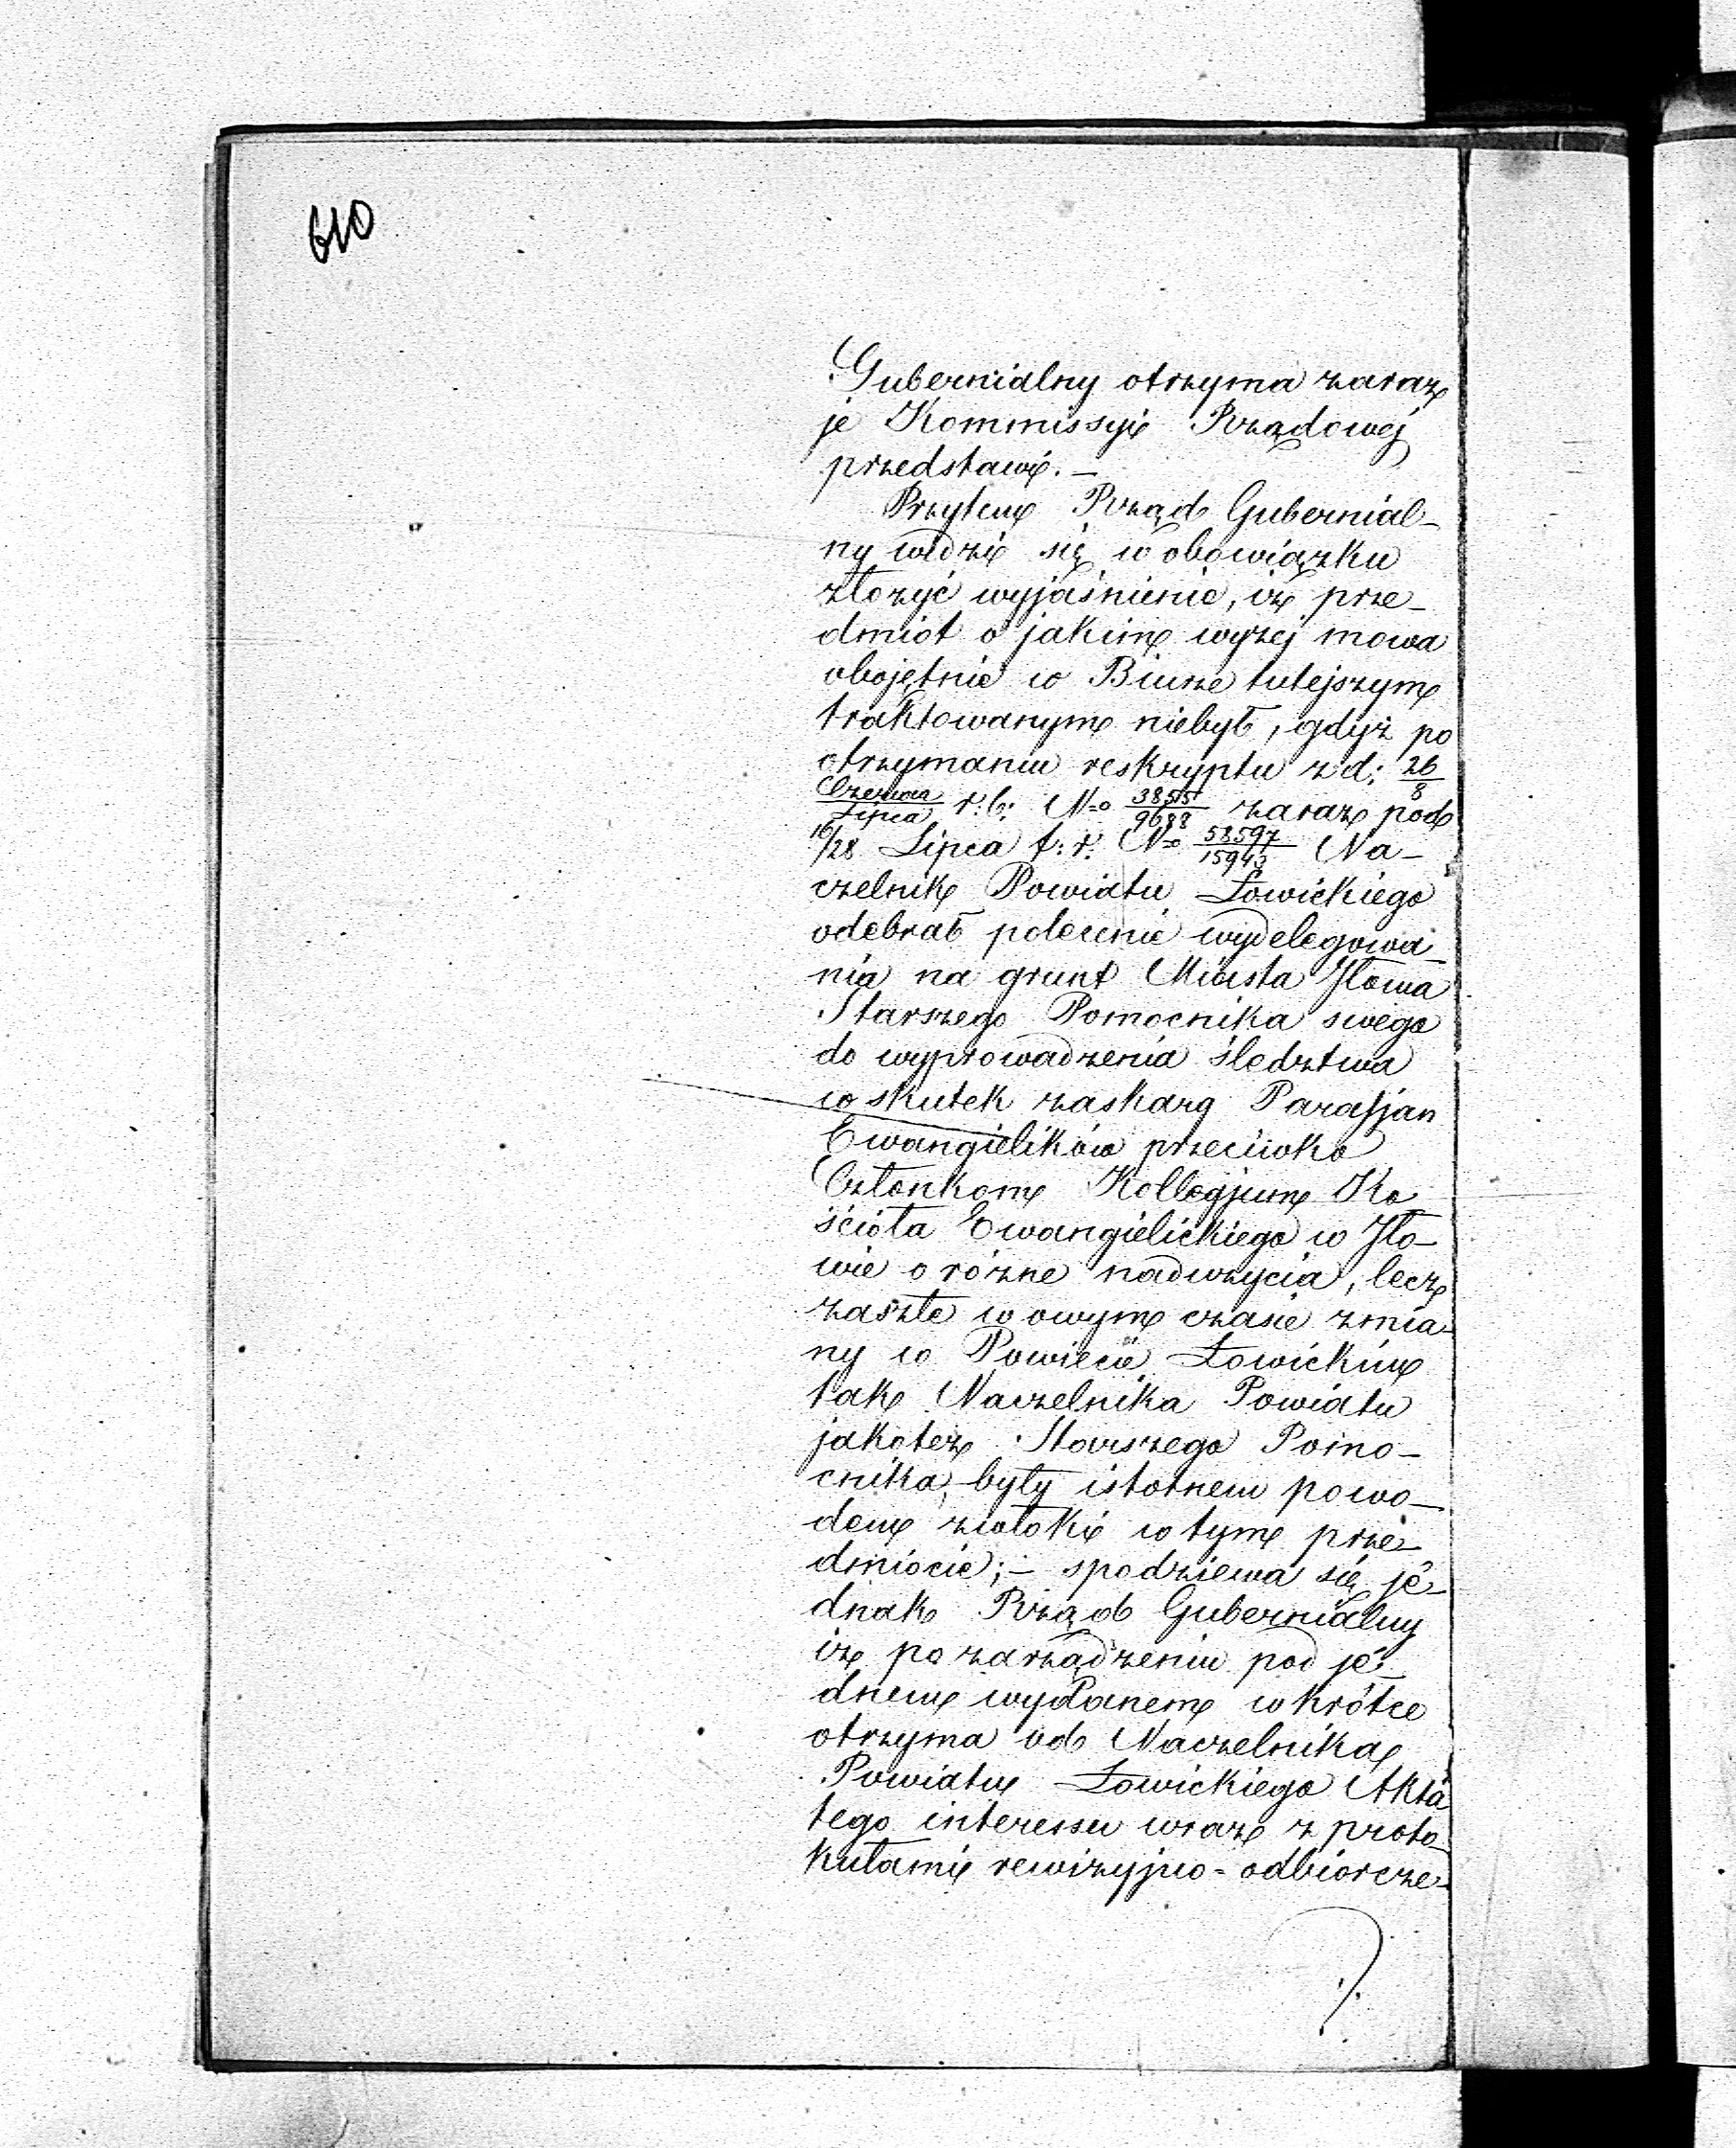 610
Gubernialny otrzyma zaraz
je Kommissyi Rządowéj
przedstawi. –
Przytem Rząd Gubernial-
ny widzi się w obowiązku
złożyć wyjaśnienie, iż prze-
dmiot o jakim wyżej mowa
obojętnie w Biurze tutejszym
traktowanym niebył, gdyż po
otrzymaniu reskryptu z d: 26/8
Czerwca/Lipca r. b: No 3855/9688 zaraz pod
16/28 Lipca t: r: No 58597/15943 Na-
czelnik Powiatu Łowickiego
odebrał polecenie wydelegowa-
nia na grunt Miasta Iłowa
Starszego Pomocnika swego
do wyprowadzenia śledztwa
w skutek zaskarg Parafjan
Ewangielików przeciwko
Członkom Kollegjum Ko
ścioła Ewangielickiego w Iło-
wie o różne nadużycia, lecz
zaszłe w owym czasie zmia-
ny w Powiecie Łowickim
tak Naczelnika Powiatu
jakoteż Starszego Pomo-
cnika, były istotnem powo-
dem zwłoki w tym prze-
dmiocie; – spodziewa się je-
dnak Rząd Gubernialny
iż po zarządzeniu pod je-
dnem wydanem wkrótce
otrzyma od Naczelnika
Powiatu Łowickiego Akta
tego interessu wraz z proto-
kułami rewizyjno-odbiorcze-
./.